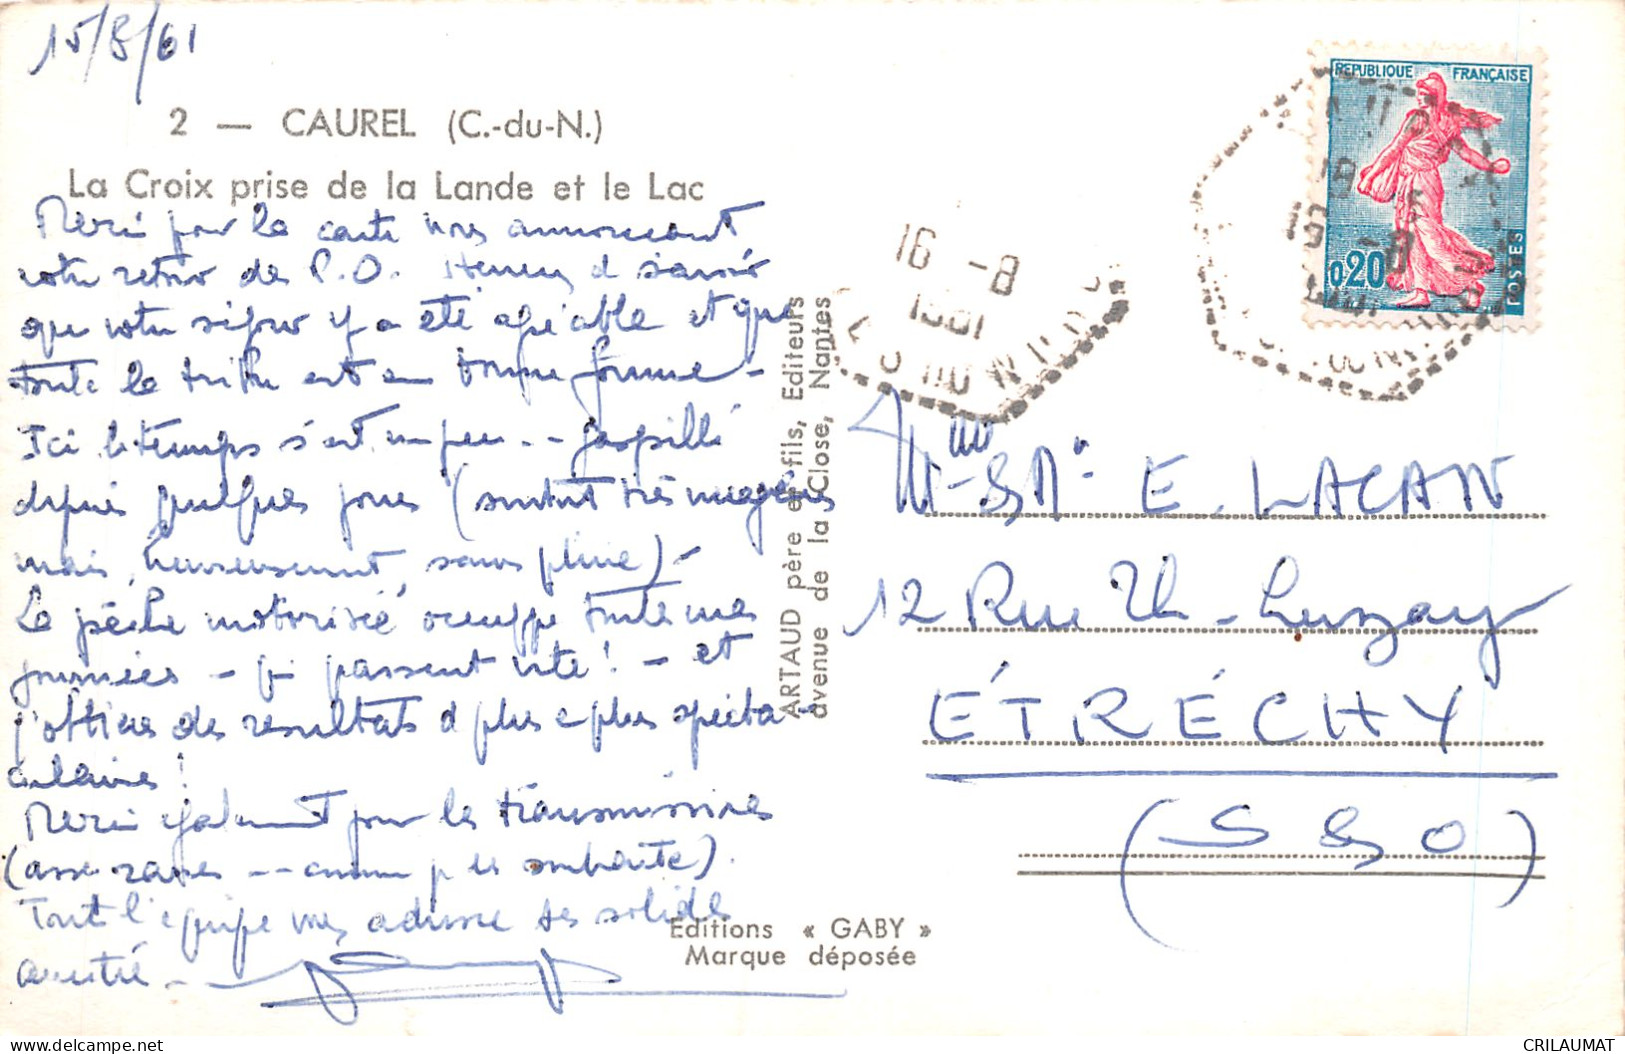 15/8/61
2 — CAUREL (C.-du-N.)
La Croix prise de la Lande et le Lac
Merci pour la carte nous annonçant
votre retour de P.O. Heureux d savoir
que votre séjour y a été agréable et que
toute la tribu est en bonne forme -
Ici le temps s'est un peu -- gaspillé
depuis quelques jours (surtout très nuageux
mais, heureusement, sans pluie) -
La pêche motorisée occuppe toute mes
journées - qi passent vite ! - et
j'obtiens des résultats d plus e plus specta-
culaires !
Merci également pour les transmissions
(assez rares -- comme je les souhaite).
Toute l'équipe vous adresse ses solides
amitié -
ARTAUD père et fils, Editeurs
avenue de la Close, Nantes
Editions « GABY »
Marque déposée
REPUBLIQUE FRANÇAISE
0,20
POSTES
16 -8
1961
E. LACAN
12 Rue Th-Lunzay
ÉTRÉCHY
(S&O)
CRILAUMAT